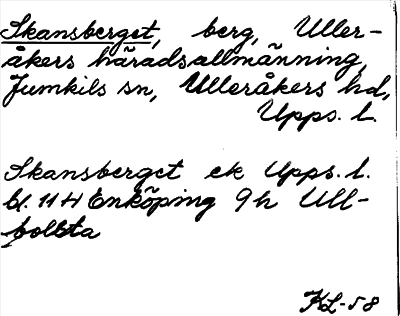 Skansberget, berg, Uller-
åkers häradsallmänning,
Jumkils sn, Ulleråkers hd,
Upps. l.
Skansberget ek Upps. l.
bl. 11 H Enköping 9 h Ull-
bolsta
KL-58